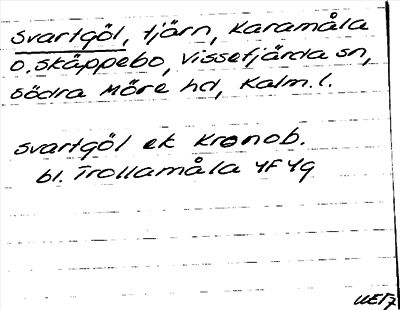 Svartgöl, tjärn, Karamåla
o. Skäppebo, Vissefjärda sn,
Södra Möre hd, Kalm. l.
Svartgöl ek Kronob.
bl. Trollamåla 4F4g